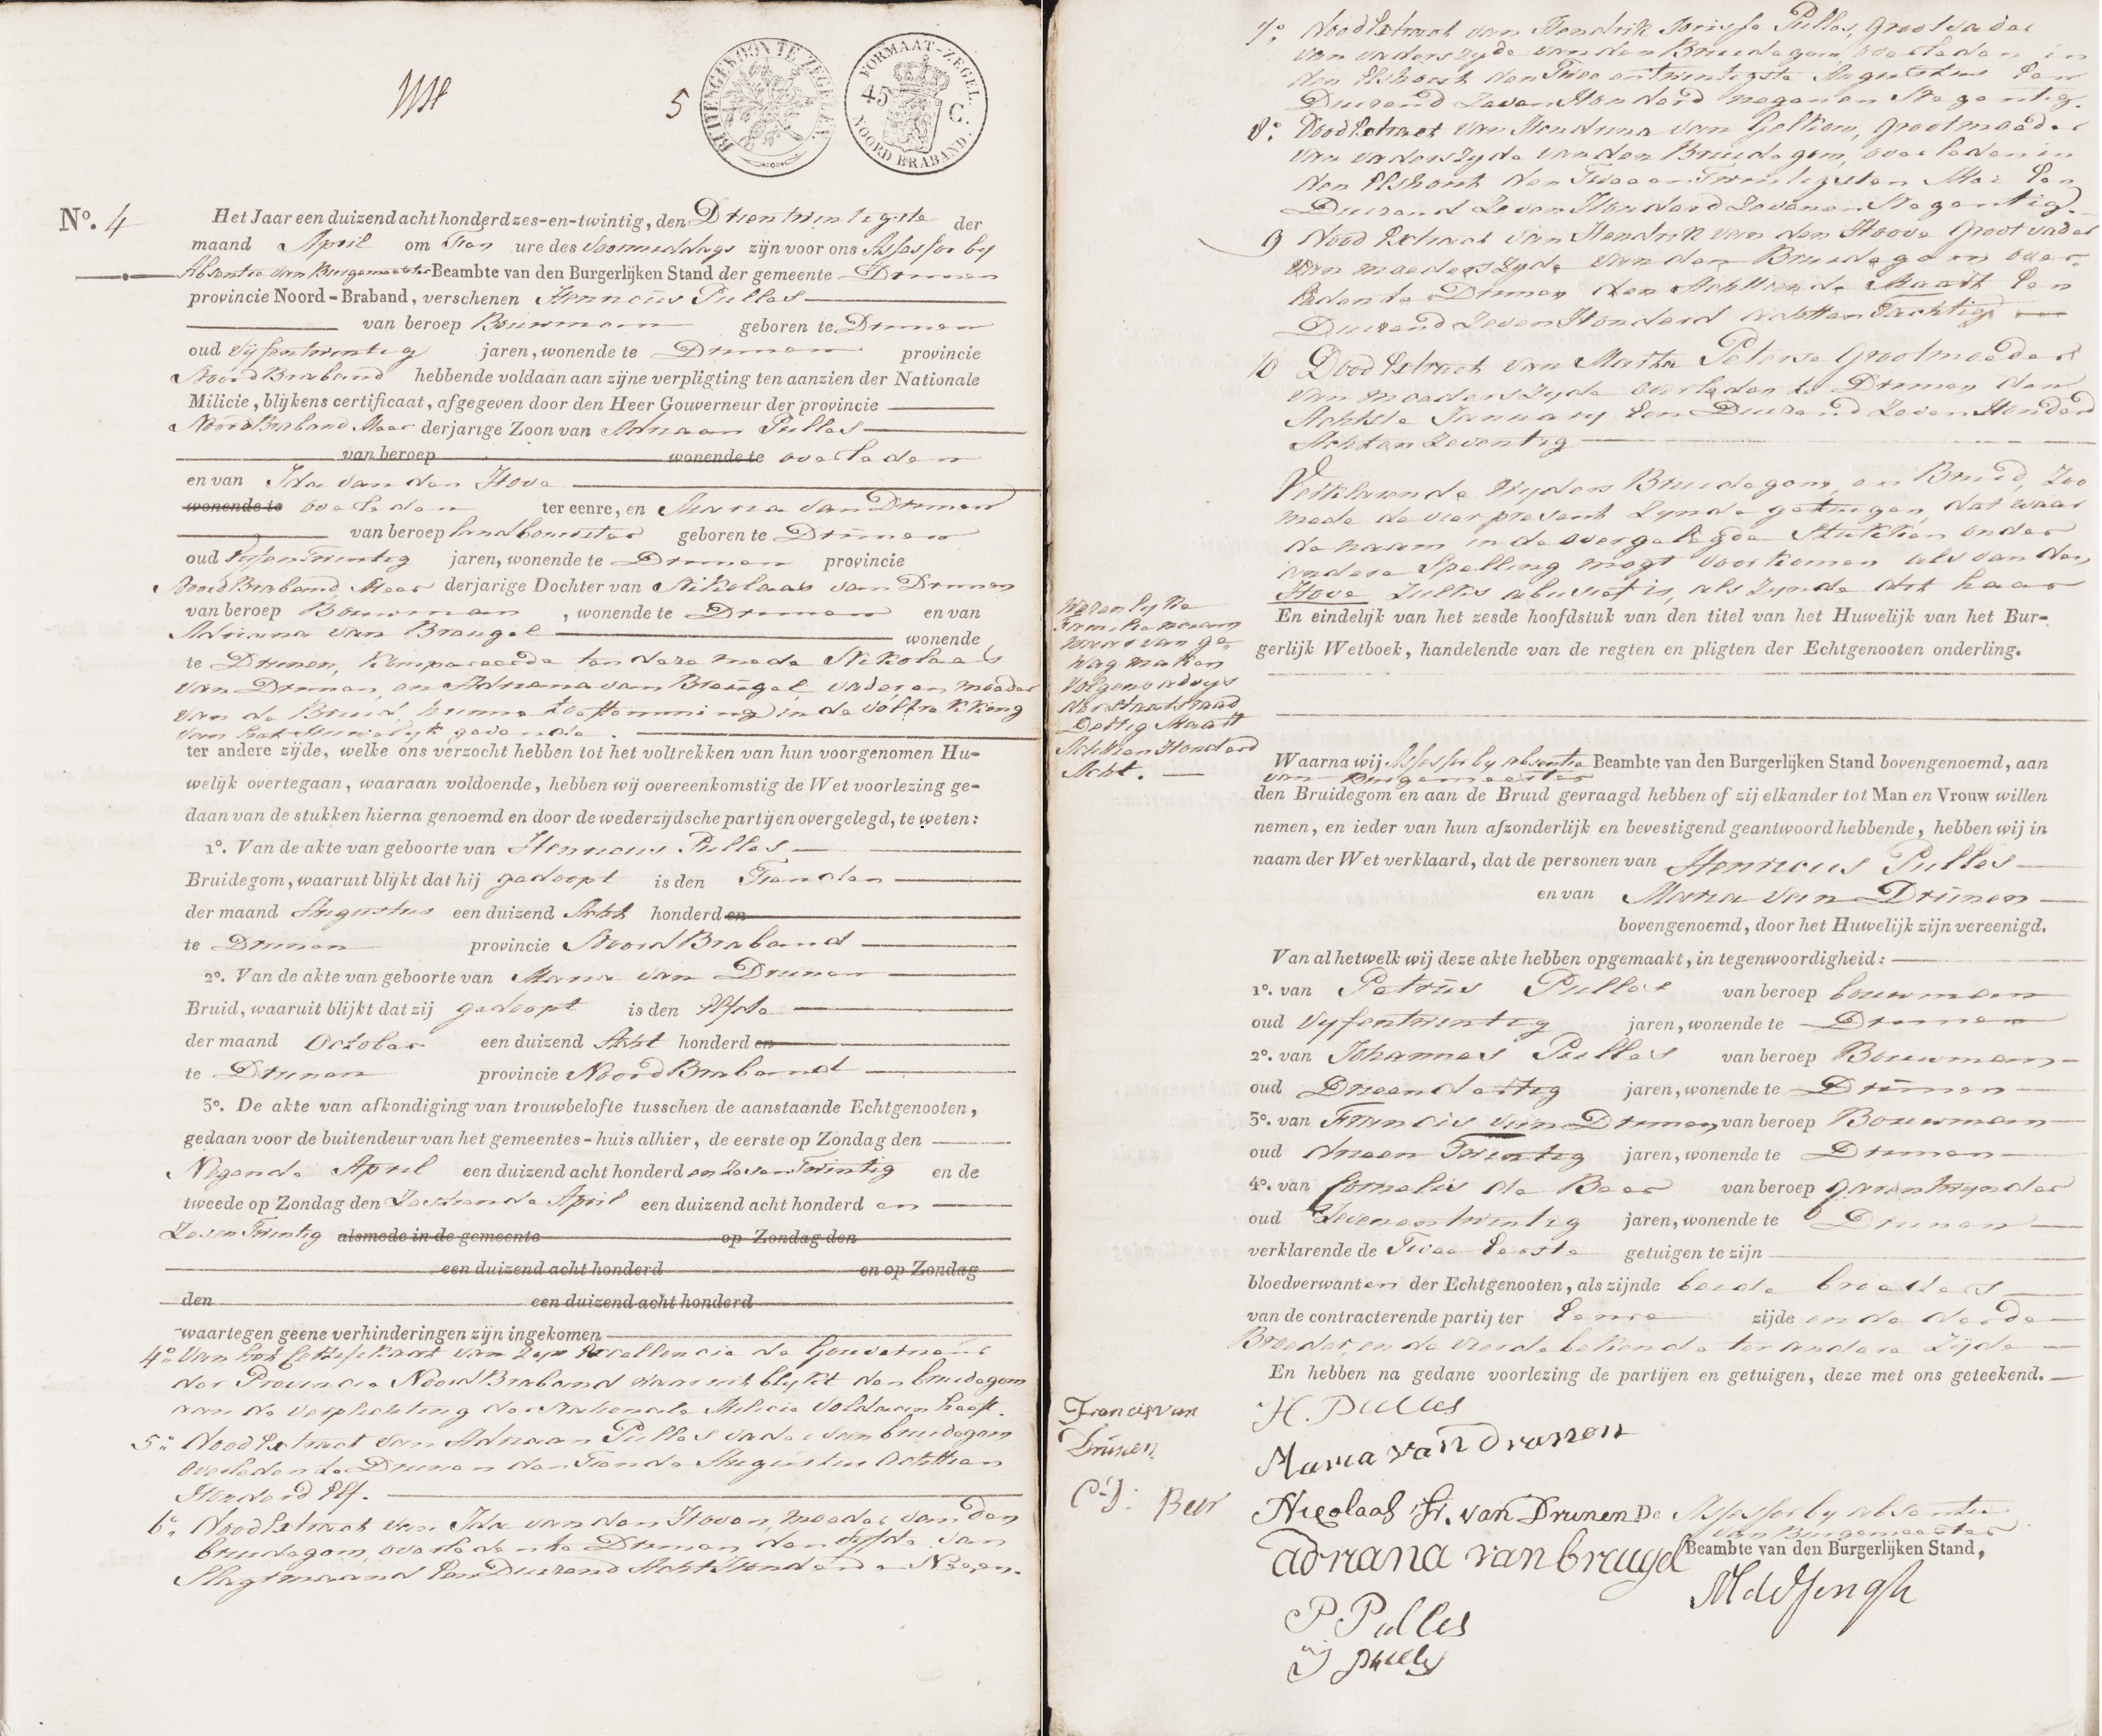 5
BUITENGEWOON TE ZEGELEN.
FORMAAT-ZEGEL.
45 C.
NOORD BRABAND.
No. 4
Het Jaar een duizend acht honderd zes-en-twintig, den Drientwintigste der
maand April om Tien ure des Voormiddags zijn voor ons Assessor by
Absentie van Burgemeester Beambte van den Burgerlijken Stand der gemeente Drunen
provincie Noord-Braband, verschenen Henricus Pulles
van beroep Bouwman geboren te Drunen
oud Vyfentwintig jaren, wonende te Drunen provincie
Noord Braband hebbende voldaan aan zijne verpligting ten aanzien der Nationale
Milicie, blijkens certificaat, afgegeven door den Heer Gouverneur der provincie
Noord Braband Meer derjarige Zoon van Adriaan Pulles
van beroep wonende te overleden
en van Ida van den Hove
wonende te overleden ter eenre, en Maria van Drunen
van beroep landbouwster geboren te Drunen
oud Vyfentwintig jaren, wonende te Drunen provincie
Noord Braband, Meer derjarige Dochter van Nikolaas van Drunen
van beroep Bouwman, wonende te Drunen en van
Adriana van Breugel wonende
te Drunen, Kompareerde ten deze mede Nikolaas
van Drunen, en Adriana van Breugel, vader en moeder
van de Bruid, hunne toestemming in de voltrekking
van het Huwelyk gevende.
ter andere zijde, welke ons verzocht hebben tot het voltrekken van hun voorgenomen Hu-
welijk overtegaan, waaraan voldoende, hebben wij overeenkomstig de Wet voorlezing ge-
daan van de stukken hierna genoemd en door de wederzijdsche partijen overgelegd, te weten:
1o. Van de akte van geboorte van Henricus Pulles
Bruidegom, waaruit blijkt dat hij gedoopt is den Tienden
der maand Augustus een duizend Acht honderd en
te Drunen provincie Noord Braband
2o. Van de akte van geboorte van Maria van Drunen
Bruid, waaruit blijkt dat zij gedoopt is den Elfde
der maand October een duizend Acht honderd en
te Drunen provincie Noord Braband
3o. De akte van afkondiging van trouwbelofte tusschen de aanstaande Echtgenooten,
gedaan voor de buitendeur van het gemeentes-huis alhier, de eerste op Zondag den
Negende April een duizend acht honderd en Zesen Twintig en de
tweede op Zondag den Zestiende April een duizend acht honderd en
Zesen Twintig alsmede in de gemeente op Zondag den
een duizend acht honderd en op Zondag
den een duizend acht honderd
waartegen geene verhinderingen zijn ingekomen
4o. Van het Certifikaat van Zyn Excellencie de Gouverneur
der Provincie Noord Braband waar uit blykt den bruidegom
aan de verplichting der Nationale Milicie voldaan heeft.
5o. Dood Extract van Adriaan Pulles vader van bruidegom
overleden te Drunen den Tiende Augustus Achttien
Honderd Elf.
6o. Dood Extract van Ida van den Hoven, moeder van den
bruidegom, overleden te Drunen den vyfde van
Slagtmaand Een Duizend Acht Honderd en Negen.
7o. Dood Extract van Hendrik Jorisse Pulles, Grootvader
van vaders zyde van den Bruidegom, overleden in
den Elshout den Twee entwintigste Augustus Een
Duizend Zeven Honderd negen en Negentig.
8o. Dood Extract van Hendrina van Gelkom, grootmoeder
van vaders zyde van den Bruidegom, overleden in
den Elshout den Twee en Twintigsten Mei Een
Duizend Zeven Honderd Zeven en Negentig.
9 Dood Extract van Hendrik van den Hoove Grootvader
van moeders zyde van den Bruidegom over-
leden te Drunen den Achttiende Maart Een
Duizend Zeven Honderd Achtten Tachtig
10 Dood Extract van Maria Peterse Grootmoeder
van moeders zyde overleden te Drunen den
Achtste January Een Duizend Zeven Honderd
Acht en Zeventig
Verklarende wyders Bruidegom, en Bruid, Zoo
mede de vier present Zynde getuigen, dat waar
de naam in de overgelegde Stukken onder
andere Spelling mogt voorkomen als van den
Hove Zulks abusief is, als Zynde dit haar
Werenlyke
Familienaam
waar van ge-
wag maken
volgens advys
der Staatsraad
Dertig Maart
Achtien Honderd
Acht.
En eindelijk van het zesde hoofdstuk van den titel van het Huwelijk van het Bur-
gerlijk Wetboek, handelende van de regten en pligten der Echtgenooten onderling.
Waarna wij Assessor by absentie Beambte van den Burgerlijken Stand bovengenoemd, aan
van Burgemeester
den Bruidegom en aan de Bruid gevraagd hebben of zij elkander tot Man en Vrouw willen
nemen, en ieder van hun afzonderlijk en bevestigend geantwoord hebbende, hebben wij in
naam der Wet verklaard, dat de personen van Henricus Pulles
en van Maria van Drunen
bovengenoemd, door het Huwelijk zijn vereenigd.
Van al hetwelk wij deze akte hebben opgemaakt, in tegenwoordigheid:
1o. van Petrus Pulles van beroep bouwman
oud Vyfentwintig jaren, wonende te Drunen
2o. van Johannes Pulles van beroep Bouwman
oud Drieendertig jaren, wonende te Drunen
3o. van Francis van Drunen, van beroep Bouwman
oud drieen Twintig jaren, wonende te Drunen
4o. van Cornelis de Beer van beroep
oud Zevenentwintig jaren, wonende te Drunen
verklarende de Twee Eerste getuigen te zijn
bloedverwanten der Echtgenooten, als zijnde beide broeders
van de contracterende partij ter Eenre zijde en de derde
Broeder, en de vierde bekende ter andere Zijde
En hebben na gedane voorlezing de partijen en getuigen, deze met ons geteekend.
H. Pulles
Maria van Drunen
Francis van
Drunen
Beer
Nicolaas Fr. van Drunen
De Assessor by absentie
van Burgemeester
Beambte van den Burgerlijken Stand,
adriana van breugel
P Pulles
J pulles